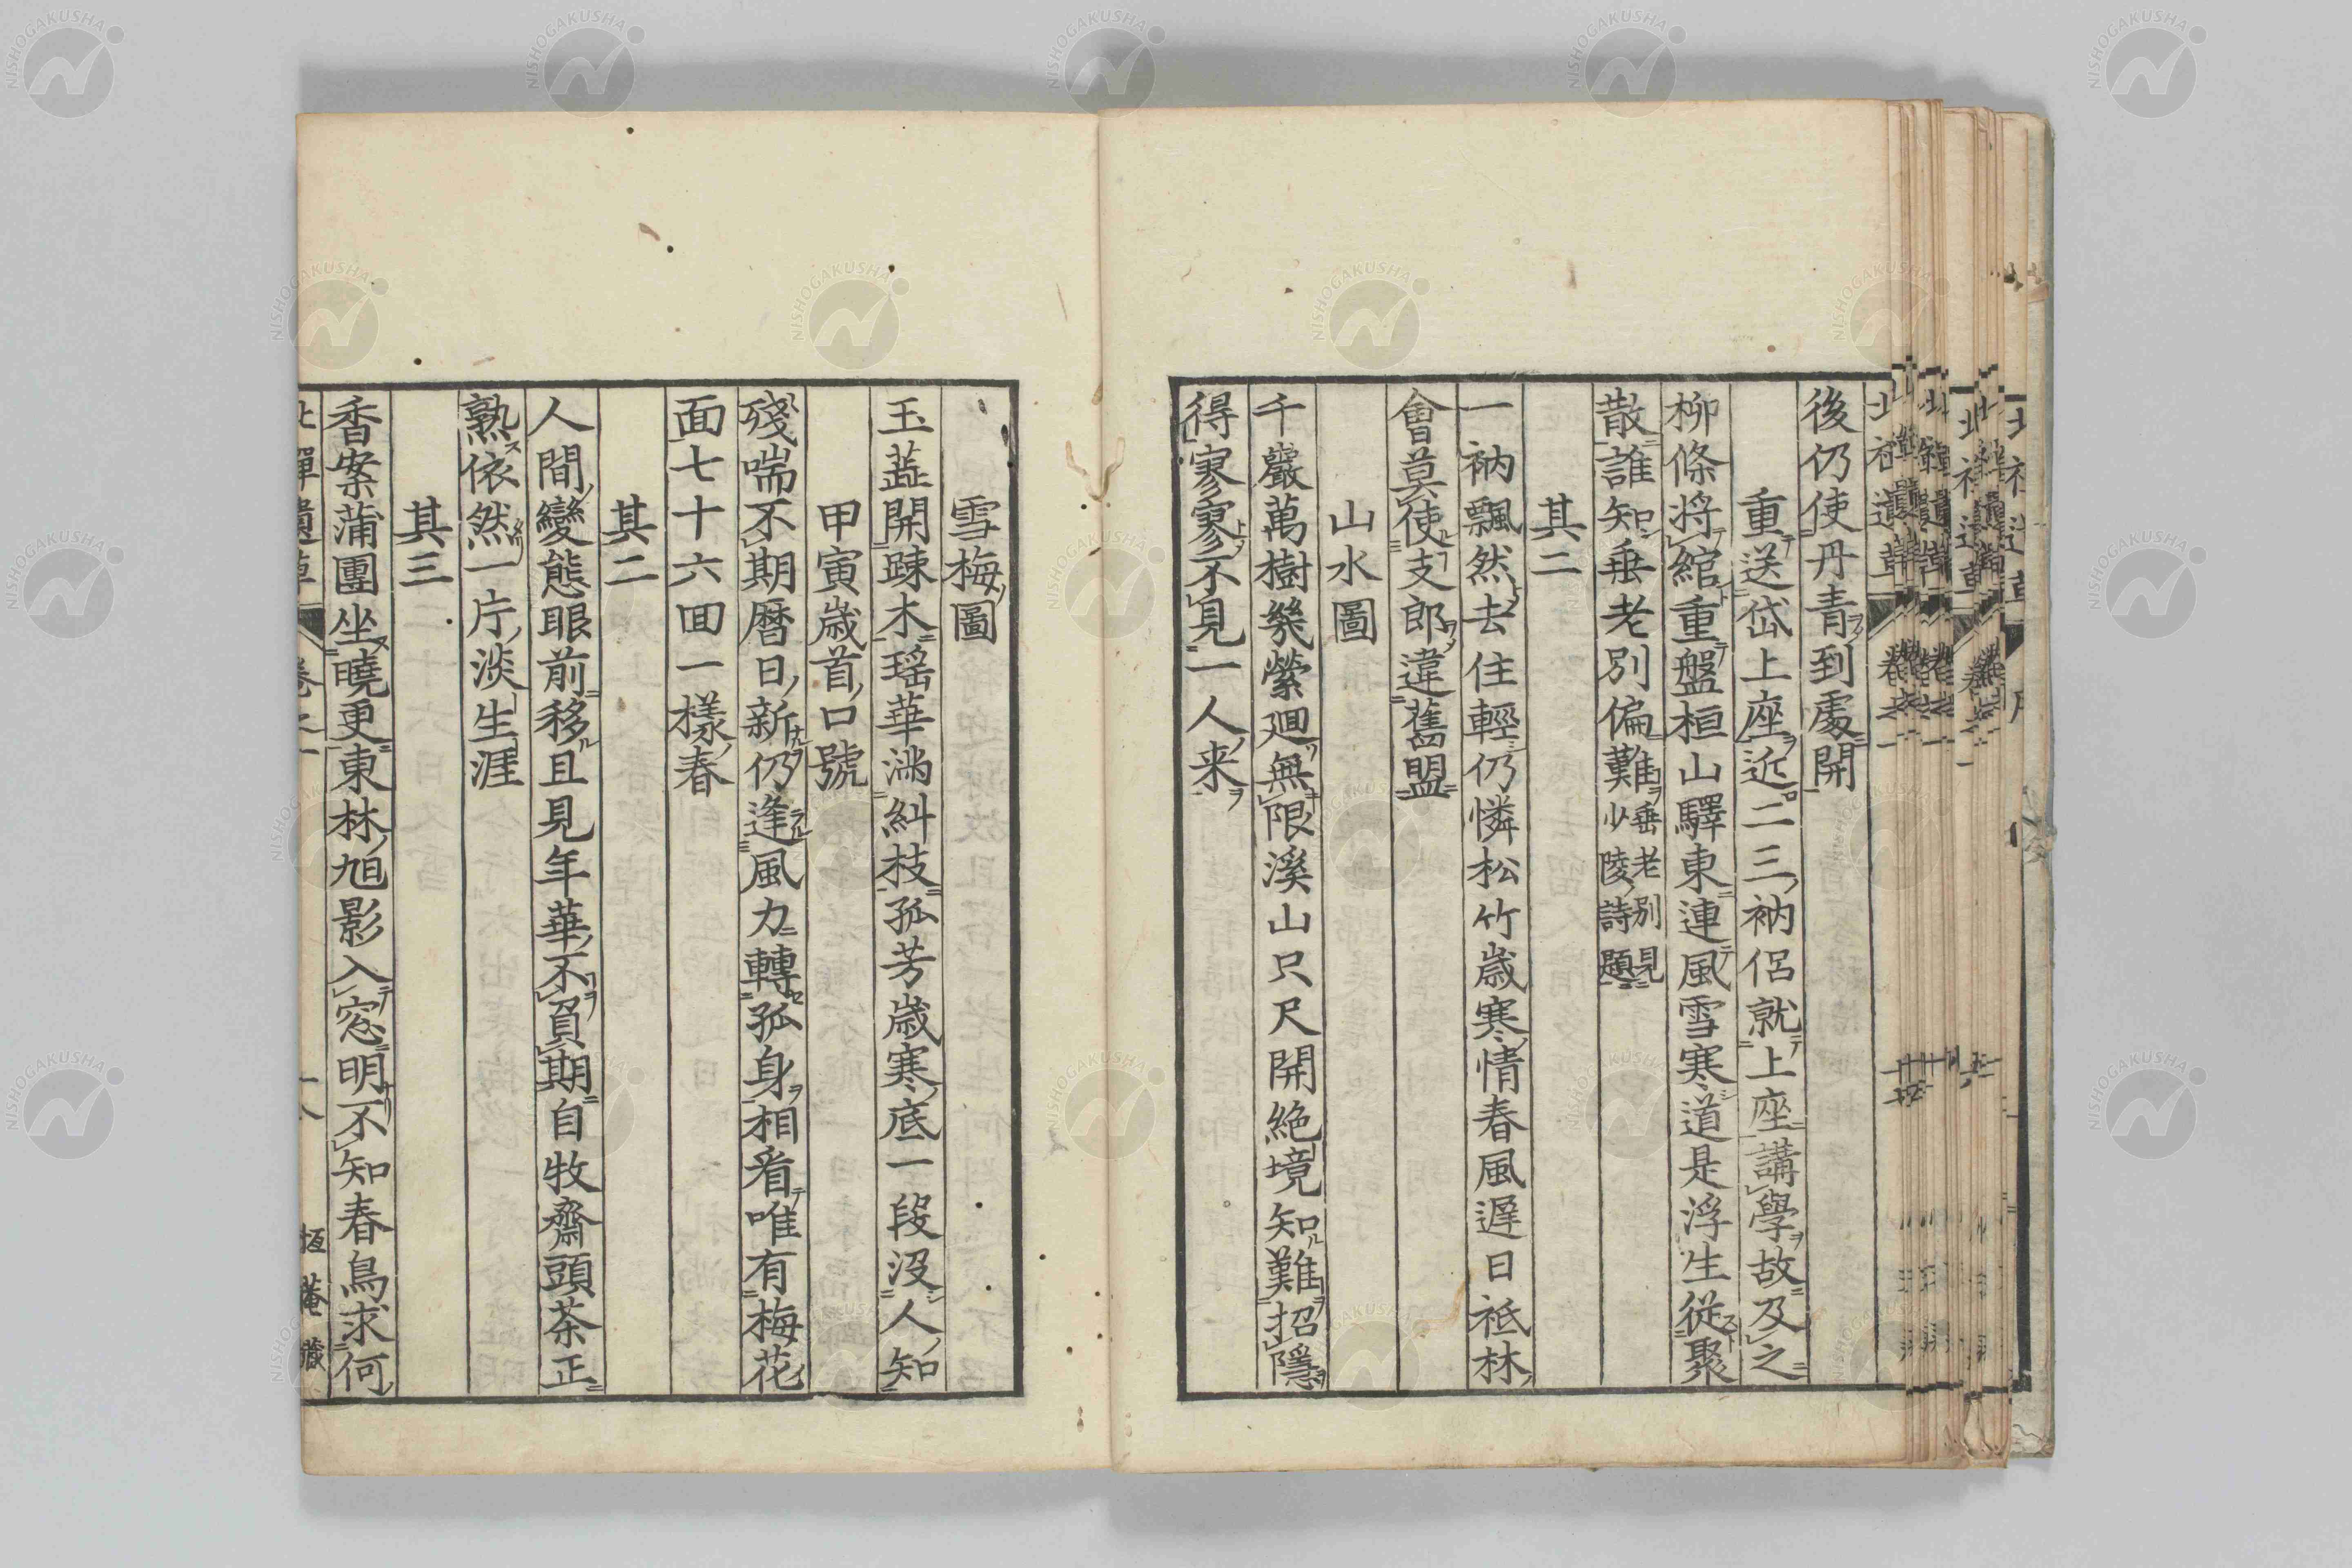 後仍使丹青到處開
重送岱上座近二三衲侶就上座講學故及之
柳條將綰重盤桓山驛東連風雪寒道是浮生從聚
散誰知垂老別偏難垂老別見少陵詩題
其二
一衲飄然去住輕仍憐松竹歲寒情春風遲日祗林
會莫使支郎違舊盟
山水圖
千巖萬樹幾縈廻無限溪山只尺開絶境知難招隱
得寥寥不見一人来
雪梅圖
玉蕋開踈木瑶華滿糾枝孤芳歲寒底一段没人知
甲寅歲首口號
殘喘不期曆日新仍逢風力轉孤身相看唯有梅花
面七十六回一樣春
其二
人間變態眼前移且見年華不負期自牧齋頭茶正
熟依然一片淡生涯
其三
香案蒲團坐曉更東林旭影入窓明不知春鳥求何
北禪遺草 卷之一 十八 恒菴藏
NISHOGAKUSHA